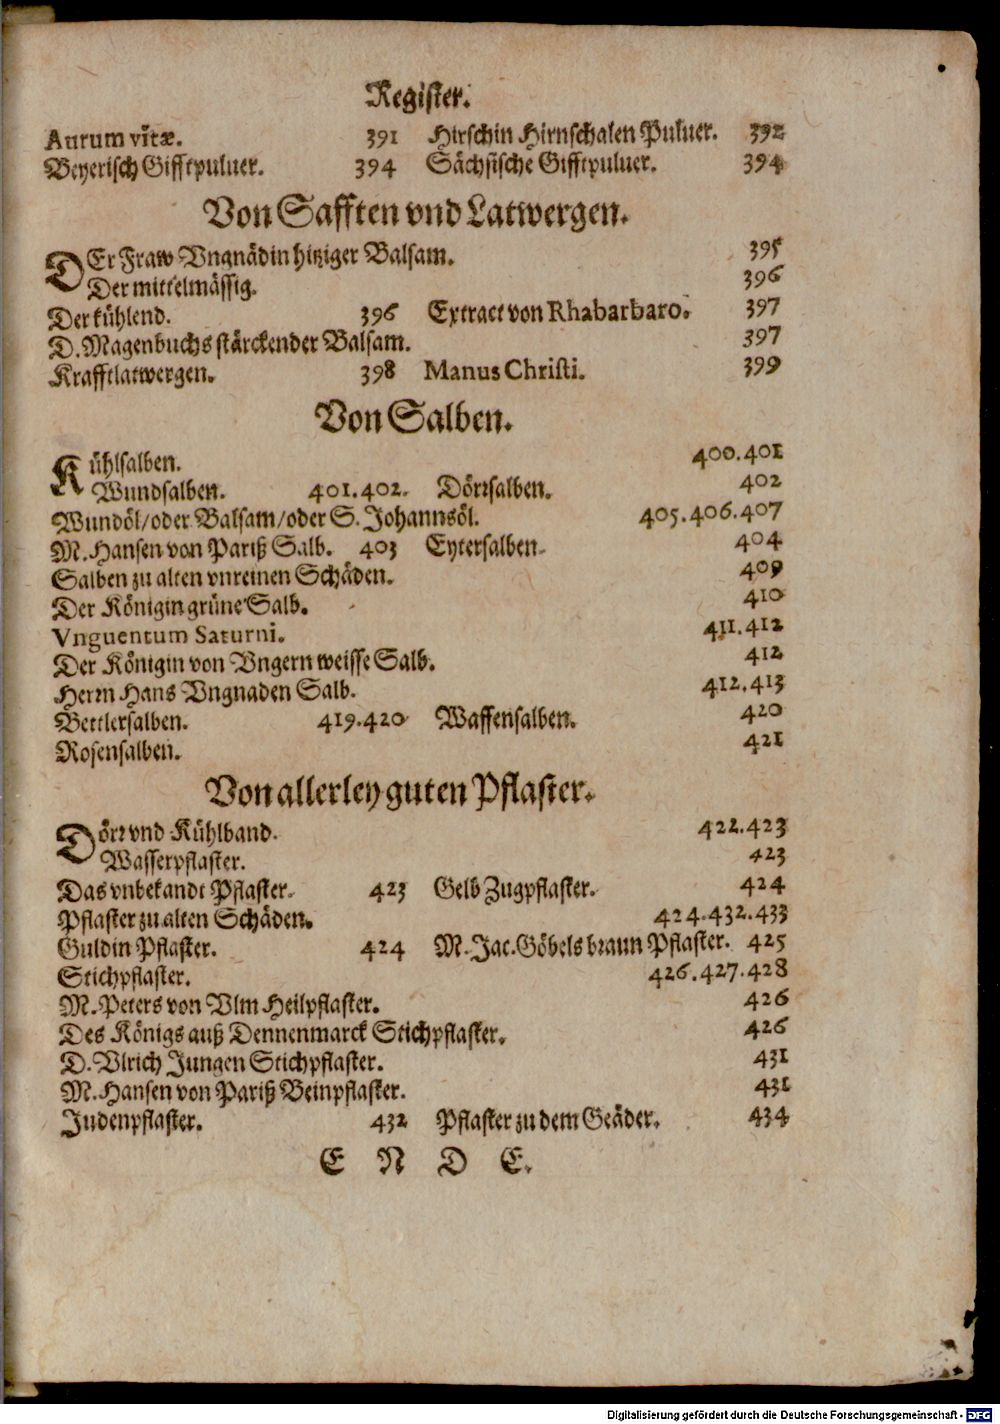 Register.
Aurum vitæ. 391 Hirschin Hirnschalen Puluer. 392
Beyerisch Gifftpuluer. 394 Sächsische Gifftpuluer. 394
Von Safften vnd Latwergen.
DEr Fraw Vngnädin hitziger Balsam. 395
Der mittelmässig. 396
Der kühlend. 396 Extract von Rhabarbaro. 397
D. Magenbuchs stärckender Balsam. 397
Krafftlatwergen. 398 Manus Christi. 399
Von Salben.
Kühlsalben. 400.401
Wundsalben. 401.402. Dörrsalben. 402
Wundöl/oder Balsam/oder S. Johannsöl. 405.406.407
M. Hansen von Pariß Salb. 403 Eytersalben. 404
Salben zu alten vnreinen Schäden. 409
Der Königin grüne Salb. 410
Vnguentum Saturni. 411.412
Der Königin von Vngern weisse Salb. 412
Herrn Hans Vngnaden Salb. 412.413
Bettlersalben. 419.420 Waffensalben. 420
Rosensalben. 421
Von allerley guten Pflaster.
Dörr vnd Kühlband. 422.423
Wasserpflaster. 423
Das vnbekandt Pflaster. 423 Gelb Zugpflaster. 424
Pflaster zu alten Schäden. 424.432.433
Guldin Pflaster. 424 M. Jac. Göbels braun Pflaster. 425
Stichpflaster. 426.427.428
M. Peters von Vlm Heilpflaster. 426
Des Königs auß Dennenmarck Stichpflaster. 426
D. Vlrich Jungen Stichpflaster. 431
M. Hansen von Pariß Beinpflaster. 431
Judenpflaster. 432 Pflaster zu dem Geäder. 434
E N D E.
Digitalisierung gefördert durch die Deutsche Forschungsgemeinschaft - DFG